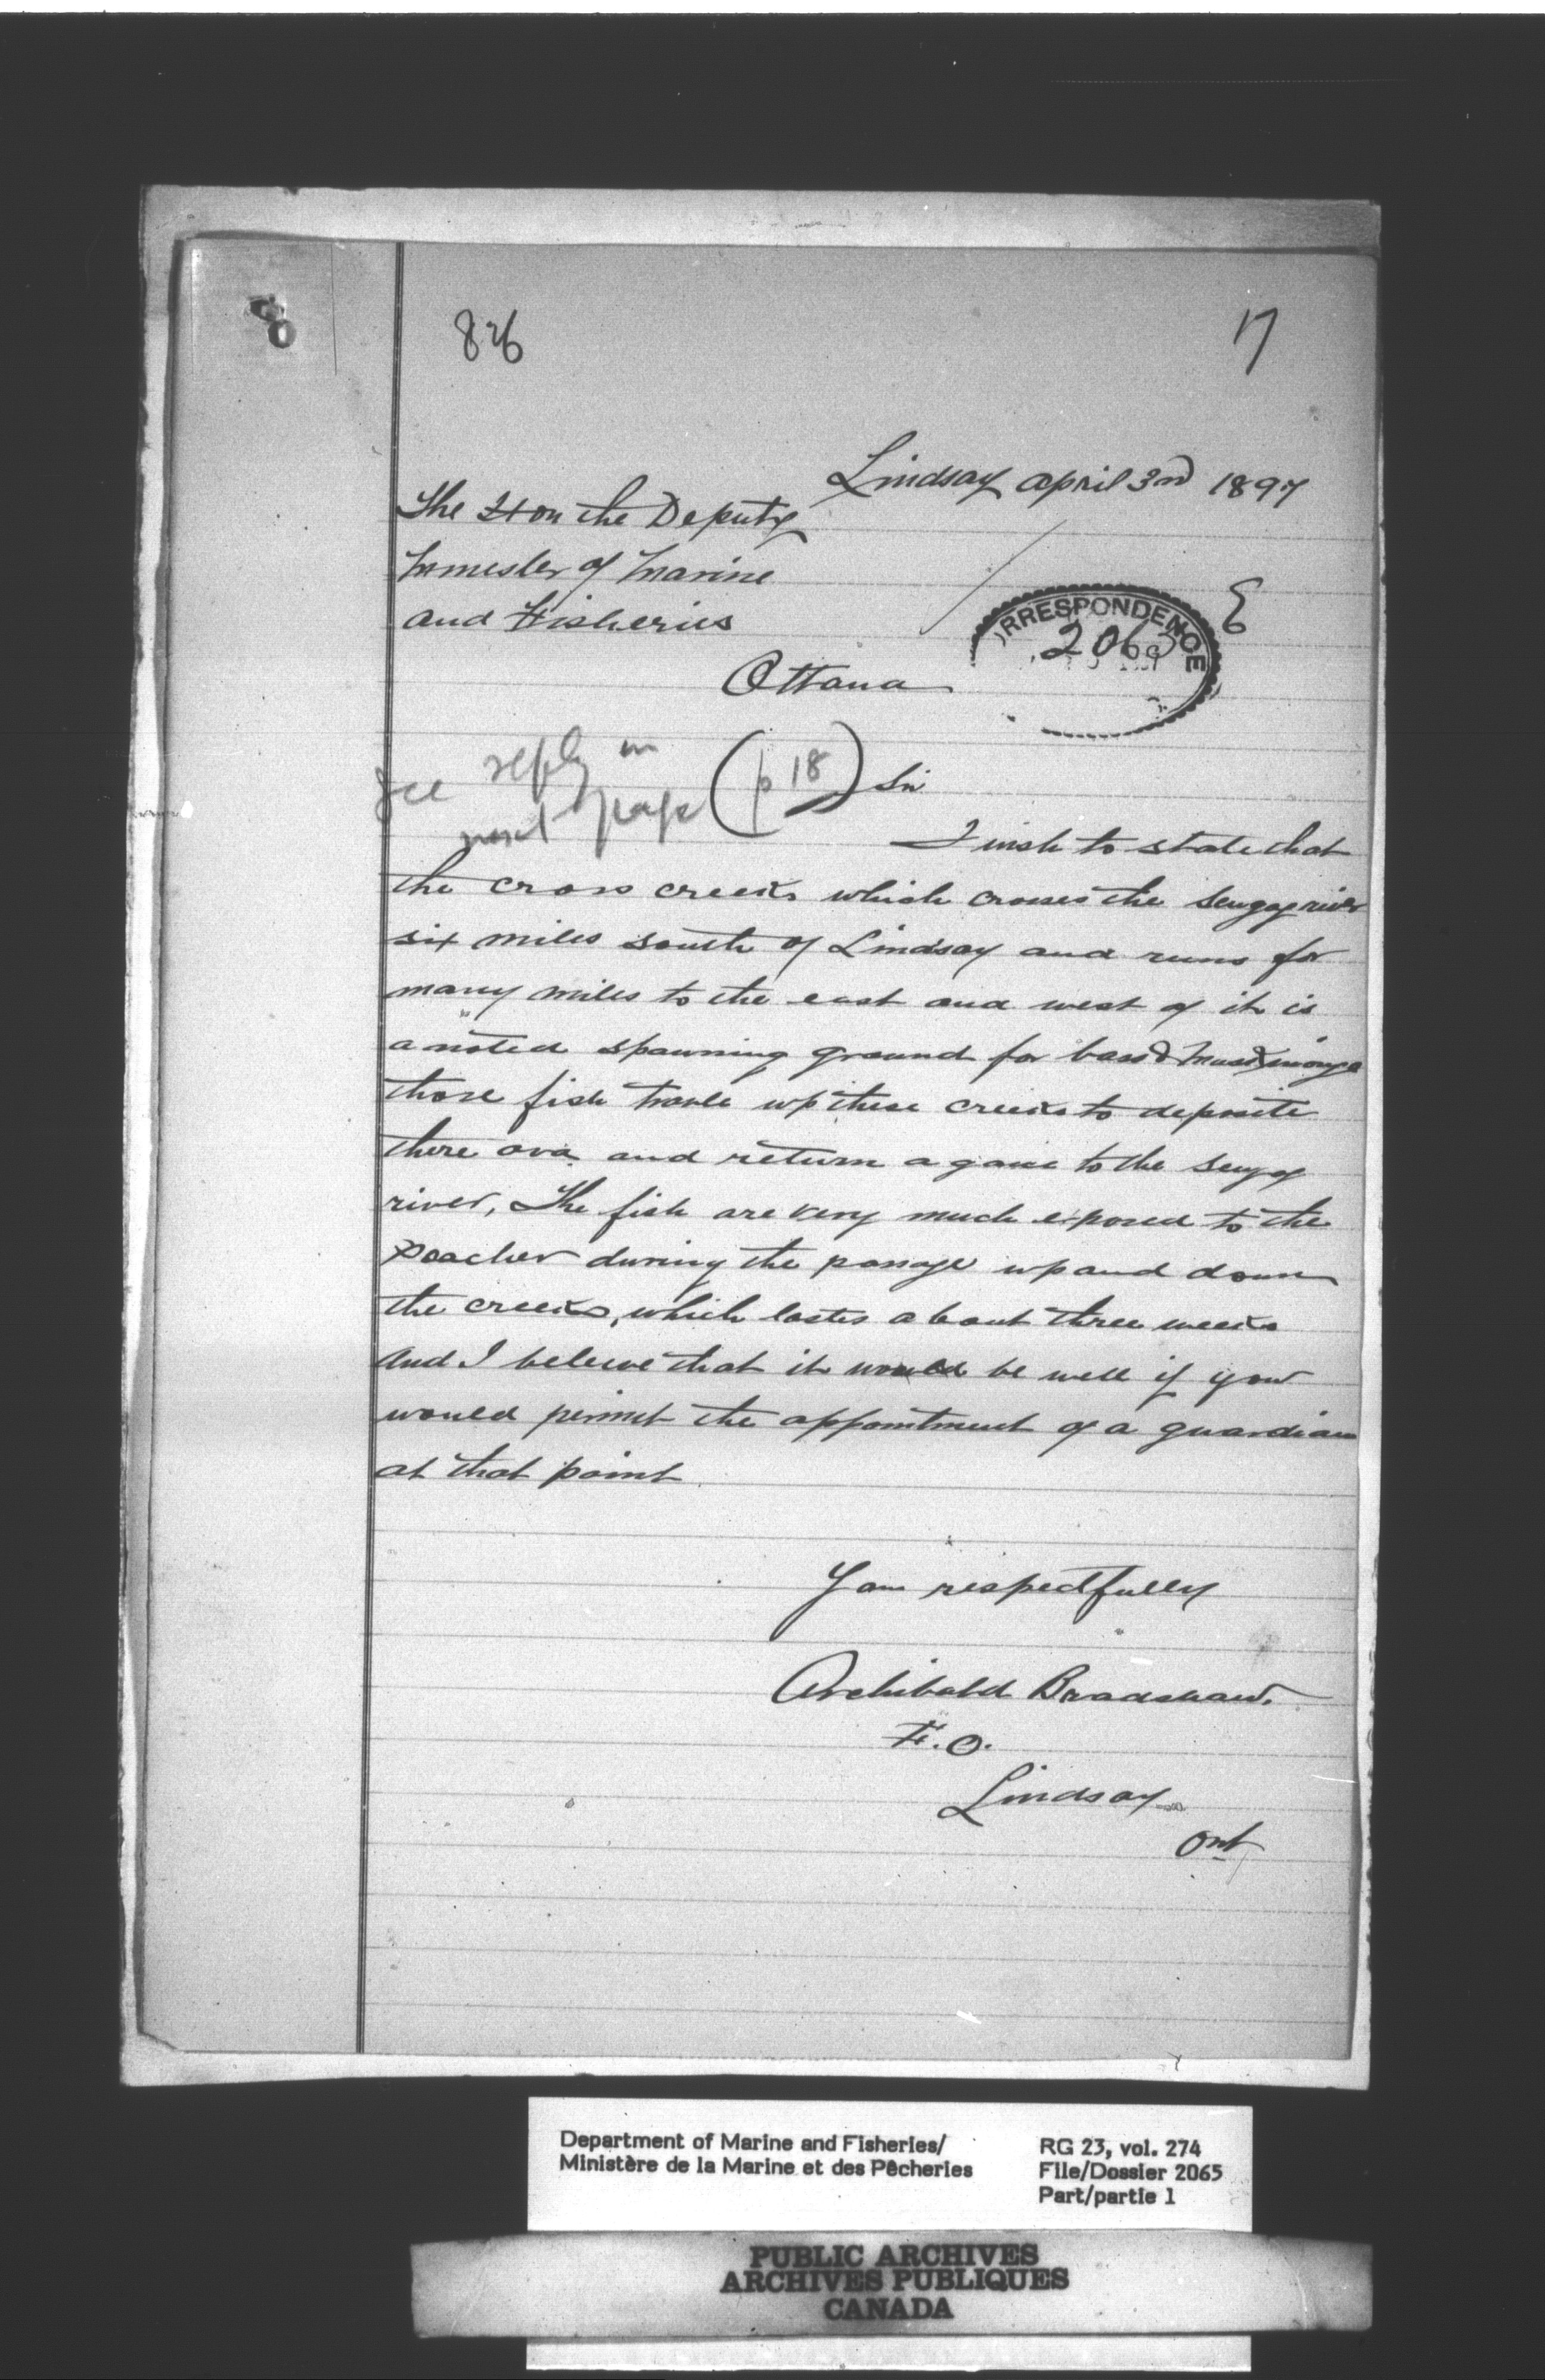 826
17
Lindsay April 3rd 1897
The Hon the Deputy
Minester of Marine
and Fisheries
Ottawa
CORRESPONDENCE
2065
E
see reply on
next page (p 18)
Sir
I wish to state that
the cross creeks which crosses the Scugog river
six miles south of Lindsay and runs for
many miles to the east and west of it is
a noted spawning ground for bass & Maskinonge
those fish travle up these creeks to deposite
there ova and return againe to the Scugog
river, The fish are very much exposed to the
Poacher during the passage up and down
the creeks, which lastes about three weeks
And I beleive that it would be well if you
would permit the appointment of a guardian
at that point
I am respectfully
Archibald Bradshaw.
F.O.
Lindsay
Ont
Department of Marine and Fisheries/
Ministère de la Marine et des Pêcheries
RG 23, vol. 274
File/Dossier 2065
Part/partie 1
PUBLIC ARCHIVES
ARCHIVES PUBLIQUES
CANADA